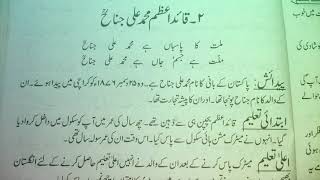 ۲۔ قائد اعظم محمد علی جناحؒ
ملت کا پاسباں ہے محمد علی جناح
ملت ہے جسم، جاں ہے محمد علی جناح
پیدائش: پاکستان کے بانی کا نام محمد علی جناح ہے۔ وہ ۲۵ دسمبر ۱۸۷۶ء کو کراچی میں پیدا ہوئے۔ ان
کے والد کا نام جناح پونجا تھا۔ اور ان کا پیشہ تجارت تھا۔
ابتدائی تعلیم: قائد اعظم بچپن ہی سے ذہین تھے۔ چھ سال کی عمر میں آپ کو سکول میں داخل کروا دیا
گیا۔ انہوں نے میٹرک مشن ہائی سکول سے پاس کیا۔ اس وقت ان کی عمر سولہ سال تھی۔
اعلیٰ تعلیم: میٹرک پاس کرنے کے بعد ان کے والد نے انہیں اعلیٰ تعلیم حاصل کرنے کے لئے انگلستان